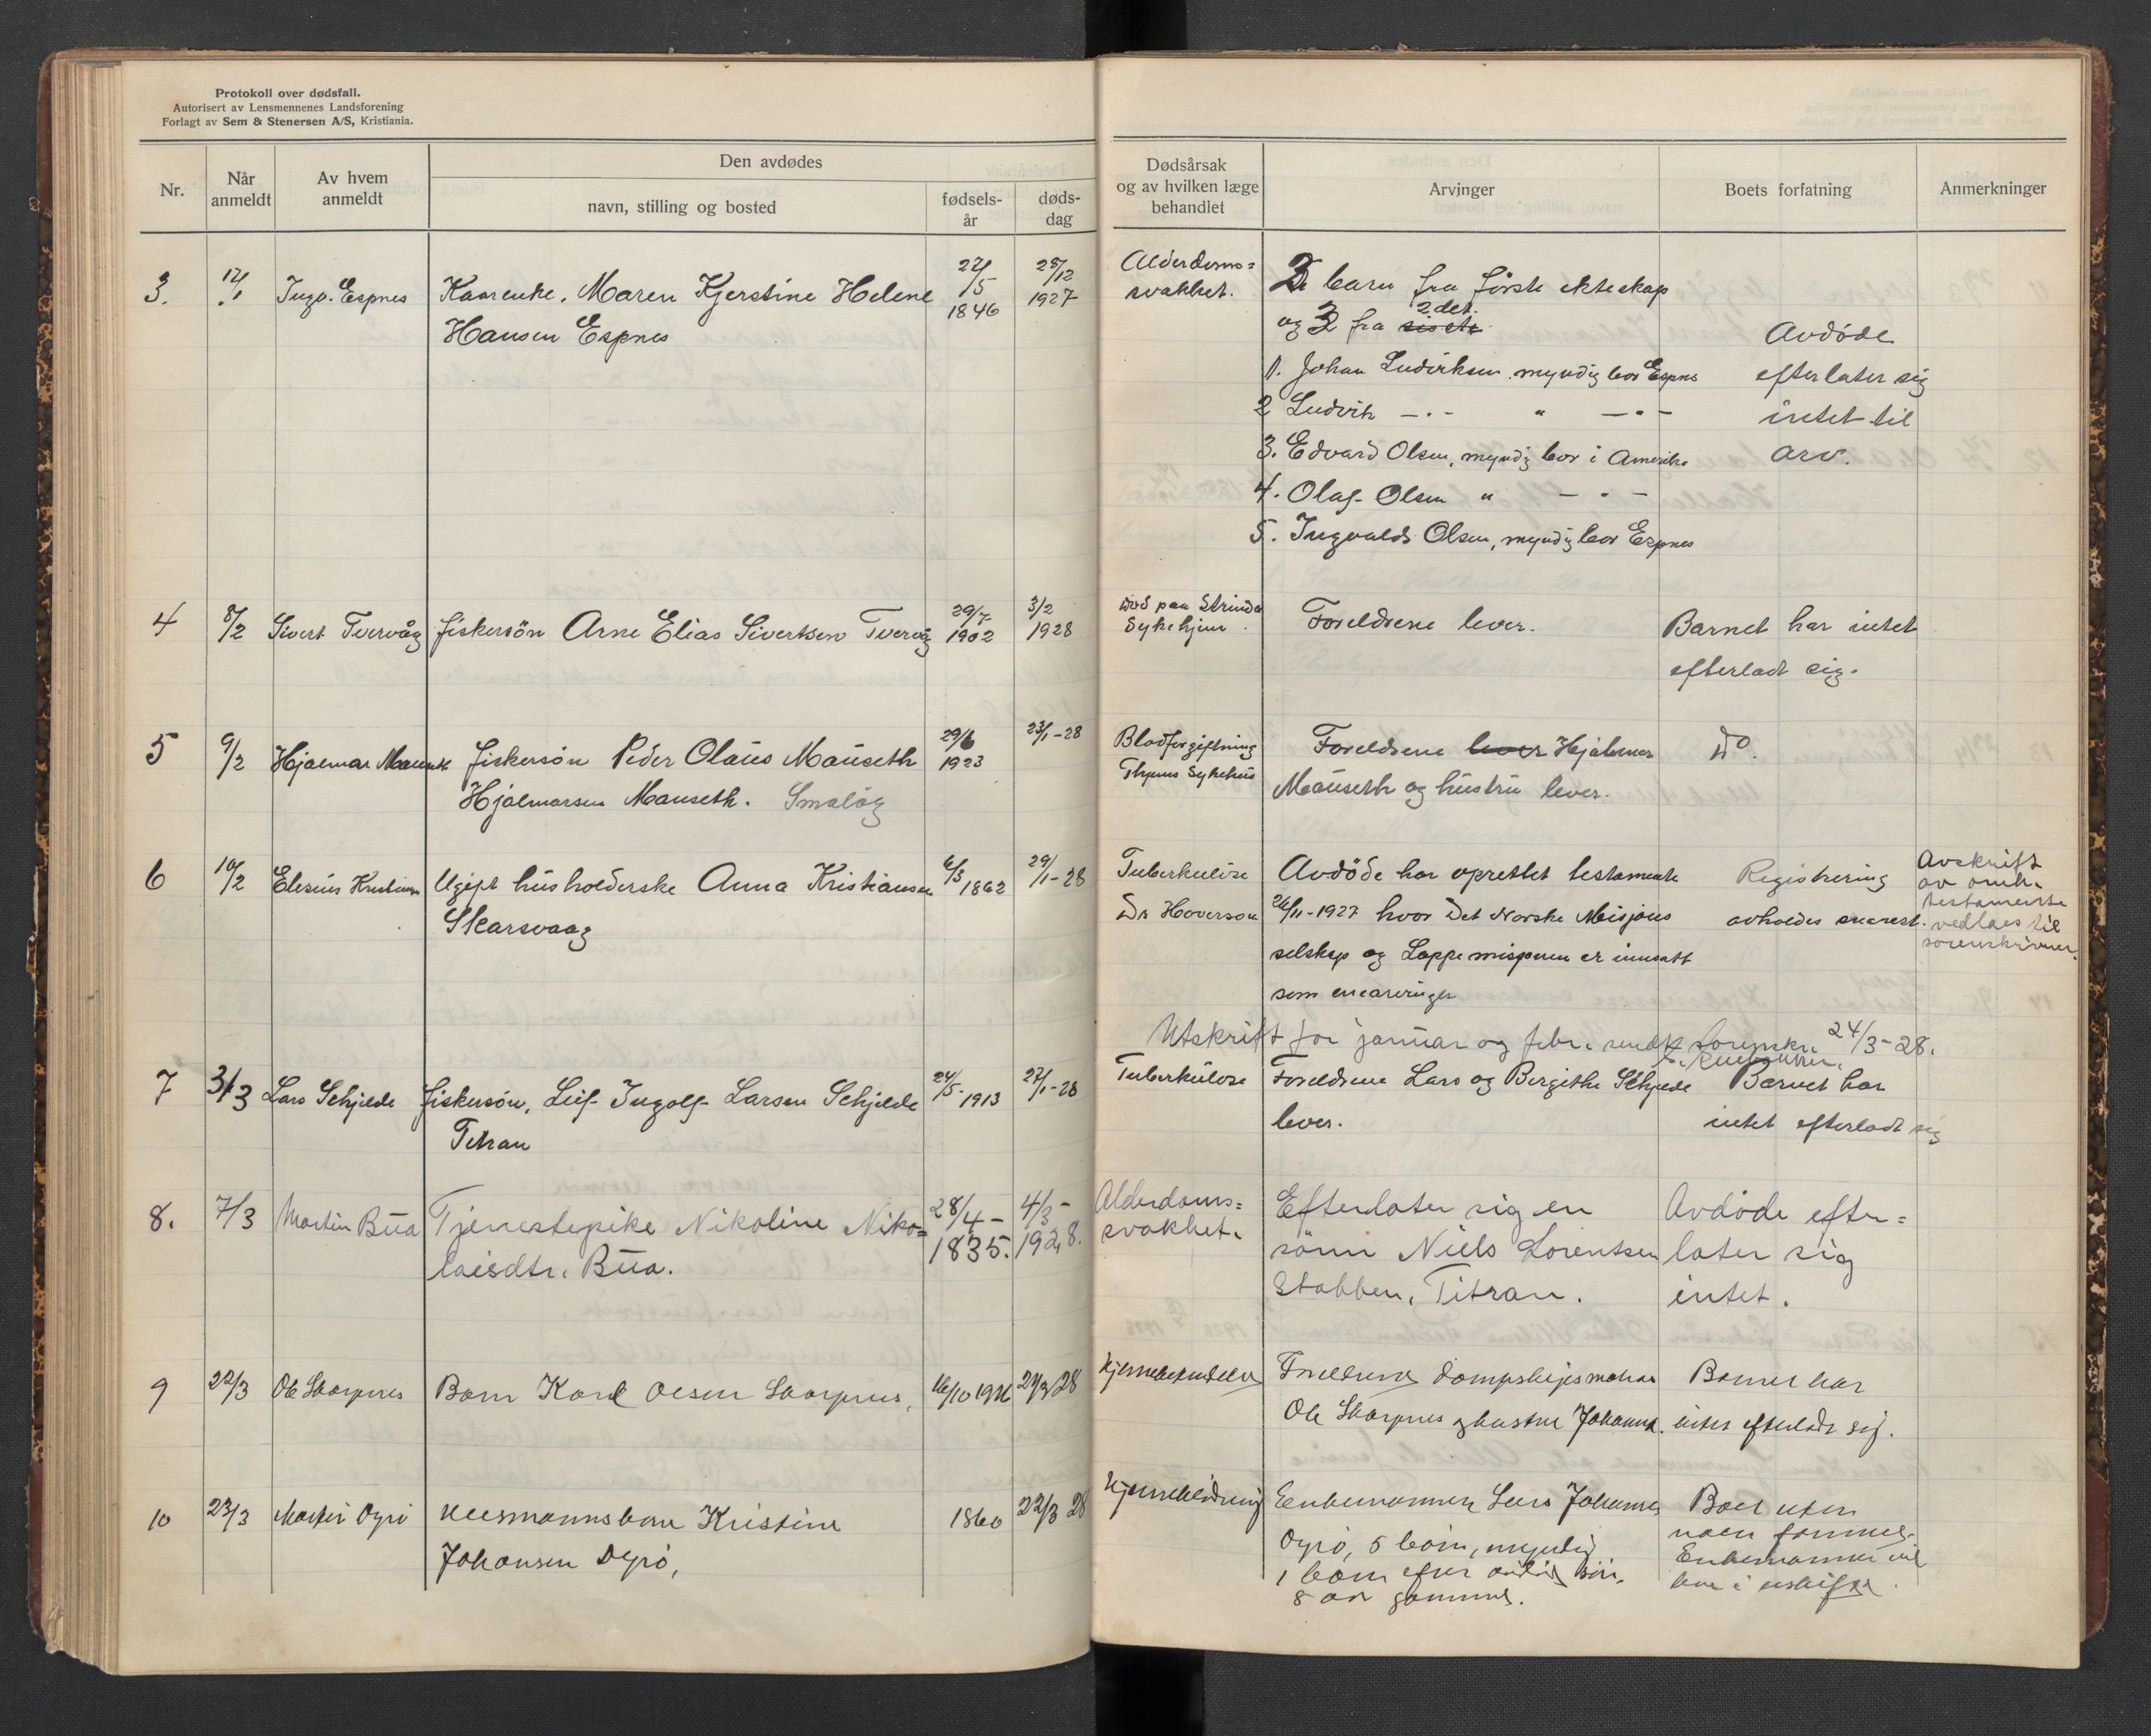 Protokoll over dødsfall.
Autorisert av Lensmennenes Landsforening
Forlagt av Sem & Stenersen A/S, Kristiania.
Nr.
Når anmeldt
Av hvem anmeldt
Den avdødes
navn, stilling og bosted
fødsels-år
døds-dag
Dødsårsak og av hvilken læge behandlet
Arvinger
Boets forfatning
Anmerkninger
3.
Ingv. Espnes
Kaarenke. Maren Kjerstine Helene
Hansen Espnes
27/5 1846
28/12 1927
Alderdoms=
svakhet.
2 barn fra første ekteskap
og 3 fra siste 2det.
1. Johan Ludviksen myndig bor Espnes
2 Ludvik —.— " —.—
3. Edvard Olsen, myndig bor i Amerika
4. Olaf Olsen " — . —
5. Ingvald Olsen, myndig bor Espnes
Avdøde
efterlater sig
intet til
arv.
4
8/2
Sivert Tvervåg
fiskersön Arne Elias Sivertsen Tvervåg
29/7 1902
3/2 1928
död paa Strinda
Sykehjem.
Foreldrene lever.
Barnet har intet
efterladt sig.
5
9/2
Hjalmar Mauseth
fiskersön Peder Olaus Mauseth
Hjalmarsen Mauseth. Smalåg
29/6 1923
23/1-28
Blodforgiftning
Thjems Sykehus
Foreldrene lever Hjalmar
Mauseth og hustru lever.
Do.
6
10/2
Elesius Kristiansen
Ugift husholderske Anna Kristiansen
Skarsvaag
6/3 1862
29/1-28
Tuberkuløse
Dr Hoverson
Avdöde har oprettet testamente
26/11-1927 hvor Det Norske Misjons
selskap og Lappemisjonen er innsatt
som enearvinger
Registrering
avholdes snarest.
Avskrift
av
testamente
vedlaes til
sorenskriver.
Utskrift for januar og febr. sendt Sorenskr. 24/3-28.
7
3/3
Lars Schjelde
fiskersön, Leif Ingolf Larsen Schjelde
Titran
24/5-1913
27/1-28
Tuberkulose
Foreldrene Lars og Bergithe Schjelde
lever.
Barnet har
intet efterladt sig
8.
7/3
Martin Bua
Tjenestepike Nikoline Niko=
laisdtr. Bua.
28/4-1835.
4/3-1928.
Alderdoms=
svakhet.
Efterlater sig en
sønn Niels Lorentsen
Stabben, Titran.
Avdøde efter=
later sig
intet.
9
22/3
Ole Skarpnes
Barn Karl Olsen Skarpnes,
16/10 1926
21/3 28
Hjernebetendelse
Foreldrene dampskipsmatros
Ole Skarpnes og hustru Johanna.
Barnet har
intet efterladt sig.
10
23/3
Martin Dyrø
Kristine
Johansen Dyrø,
1860
22/3 28
Hjerneblødning
Enkemannen Lars Johansen
Dyrø, 5 barn, myndig
1 barn efter avdød
8 år gammel.
Boet uten
Enkemannen vil
i uskifte.